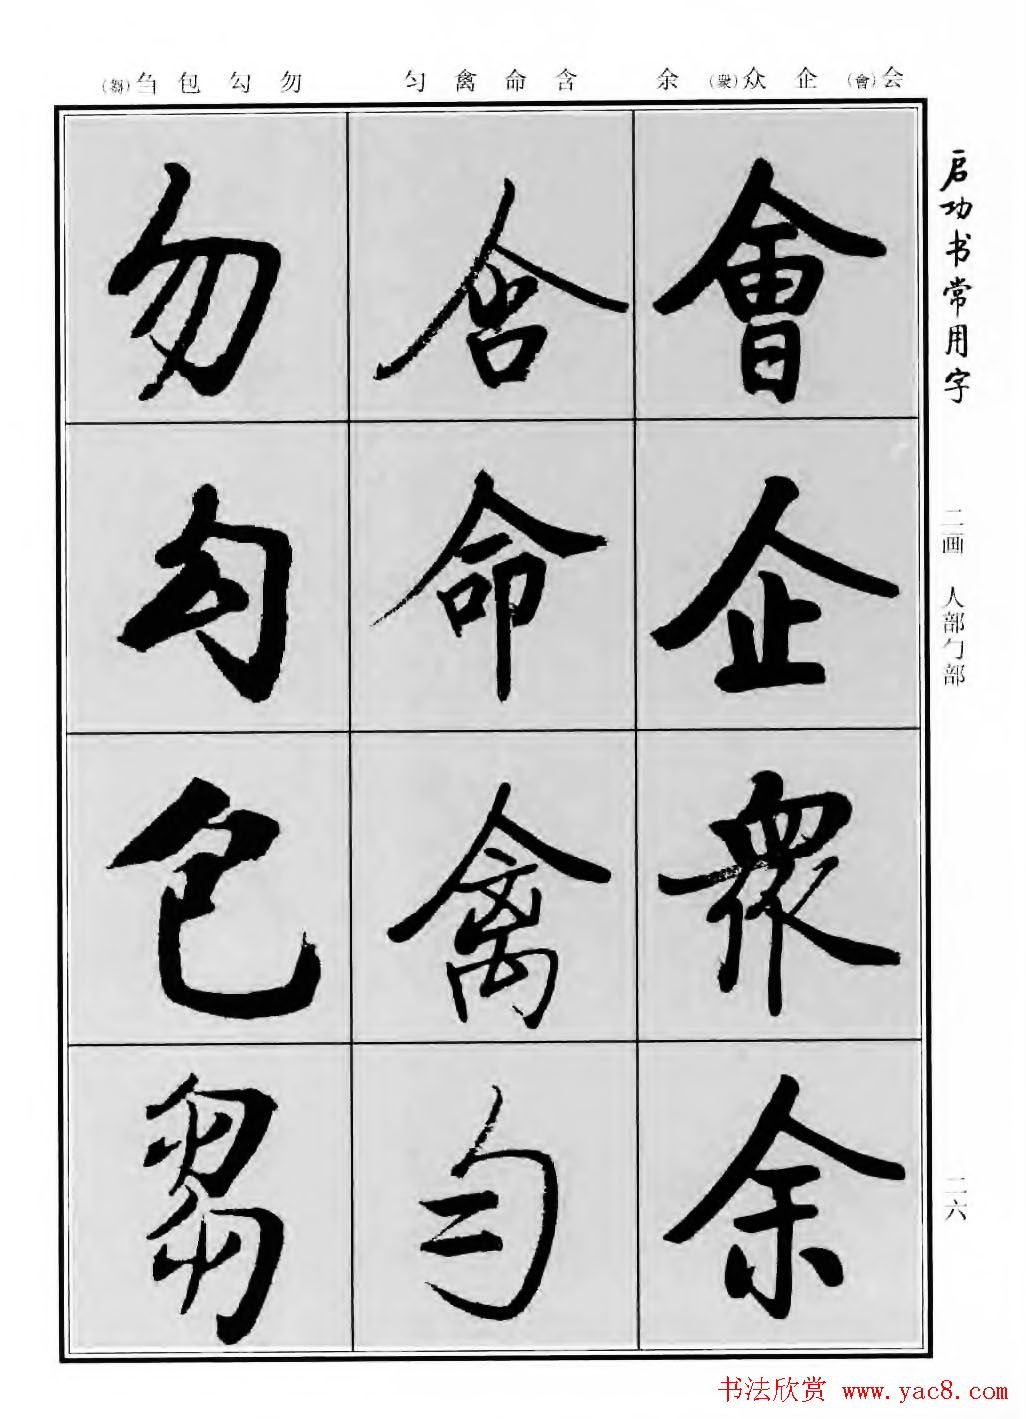 会(會) 企 众(衆) 余
含 命 禽 匀
勿 勾 包 刍(芻)
會
企
衆
余
含
命
禽
匀
勿
勾
包
芻
启功书常用字
二画 人部勹部
二六
书法欣赏 www.yac8.com